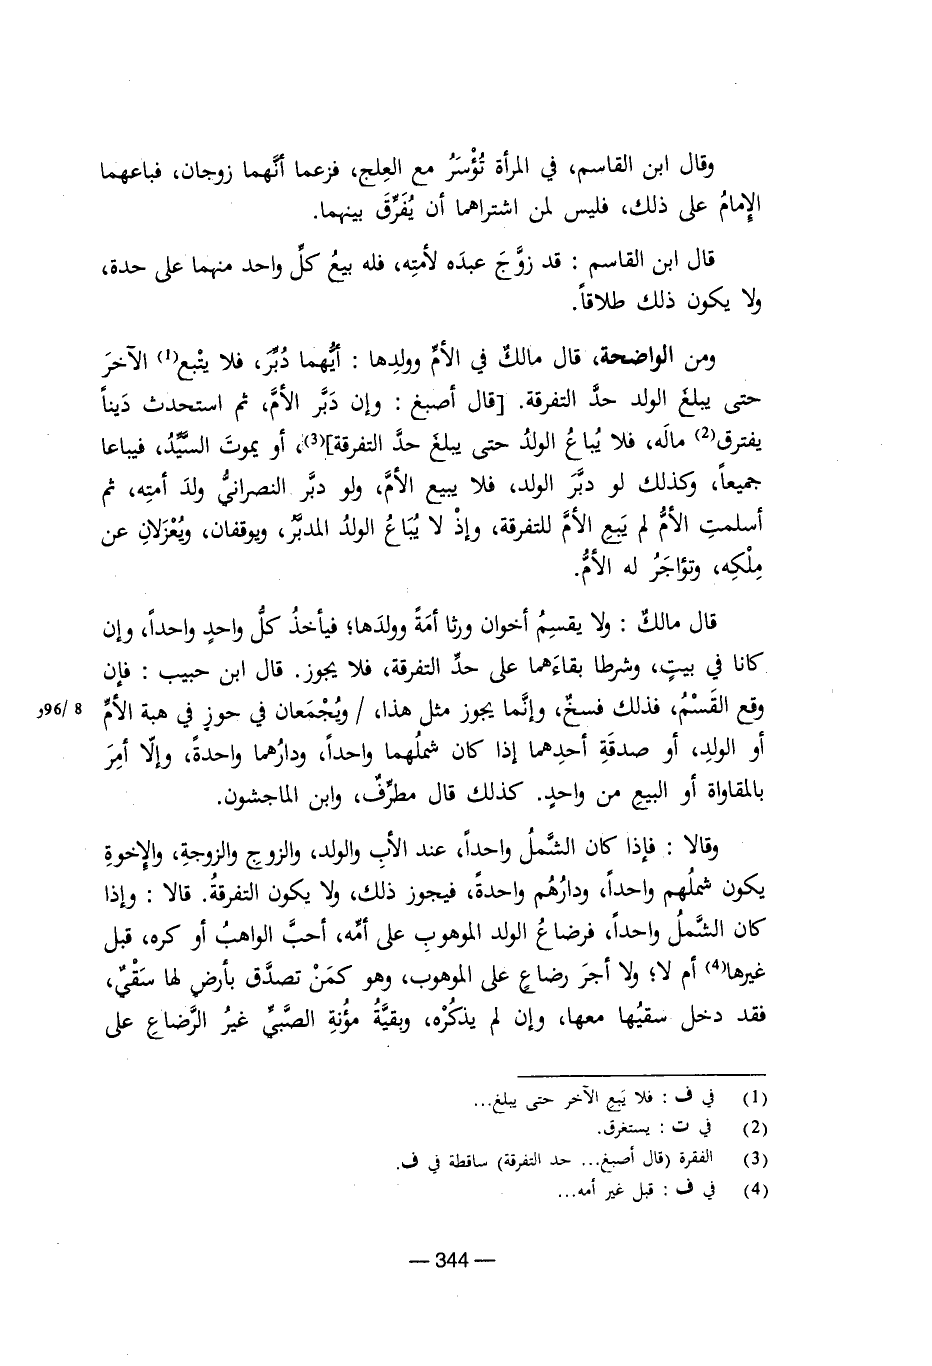 وقال ابن القاسم، في المرأة تُؤْسَرُ مع العِلج، فزعما أنَّهما زوجان، فباعهما
الإمامُ على ذلك، فليس لمن اشتراهما أن يُفَرِّقَ بينهما.
قال ابن القاسم : قد زوَّجَ عبدَه لأمتِه، فله بيعُ كلِّ واحد منهما على حدة،
ولا يكون ذلك طلاقاً.
ومن الواضحة، قال مالكٌ في الأمِّ وولدِها : أيُّهما دُبِّرَ، فلا يتْبع(1) الآخرَ
حتى يبلغَ الولد حدَّ التفرقة. [قال أصبغ : وإن دَبَّر الأمَّ، ثم استحدث دَيناً
يفترق(2) مالَه، فلا يُباعُ الولدُ حتى يبلغَ حدَّ التفرقة](3)، أو يموتَ السيِّدُ، فيباعا
جميعاً، وكذلك لو دبَّرَ الولد، فلا يبيع الأمَّ، ولو دبَّر النصرانيُّ ولدَ أمتِه، ثم
أسلمتِ الأمُّ لم يَبِعِ الأمَّ للتفرقة، وإذْ لا يُبَاعُ الولدُ المدبَّرُ، ويوقفان، ويُعْزَلانِ عن
مِلْكِه، وتؤاجَرُ له الأمُّ.
قال مالكٌ : ولا يقسِمُ أخوان ورثا أمَةً وولدَها؛ فيأخذُ كلُّ واحدٍ واحداً، وإن
كانا في بيتٍ، وشرطا بقاءَهما على حدِّ التفرقة، فلا يجوز. قال ابن حبيب : فإن
وقع القَسْمُ، فذلك فسخٌ، وإنَّما يجوز مثل هذا، / ويُجْمَعان في حوزٍ في هبة الأمِّ 8 /96و
أو الولدِ، أو صدقَةِ أحدِهما إذا كان شملُهما واحداً، ودارُهما واحدةً، وإلّا أمِرَ
بالمقاواة أو البيع من واحدٍ. كذلك قال مطرِّفٌ، وابن الماجشون.
وقالا : فإذا كان الشَّملُ واحداً، عند الأبِ والولد، والزوجِ والزوجةِ، والإخوةِ
يكون شملُهم واحداً، ودارُهُم واحدةً، فيجوز ذلك، ولا يكون التفرقةُ. قالا : وإذا
كان الشَّملُ واحداً، فرضاعُ الولد الموهوبِ على أمِّه، أحبَّ الواهبُ أو كره، قبل
غيرها(4) أم لا؛ ولا أجرَ رضاعٍ على الموهوب، وهو كمَنْ تصدَّق بأرضٍ لها سَقْيٌ،
فقد دخل سقيُها معها، وإن لم يذكُرْه، وبقيَّةُ مؤُنةِ الصَّبيِّ غيرُ الرَّضاعِ على
(1) في ف : فلا يَبِعِ الآخر حتى يبلغ...
(2) في ت : يستغرق.
(3) الفقرة (قال أصبغ... حد التفرقة) ساقطة في ف.
(4) في ف : قبل غير أمه...
— 344 —